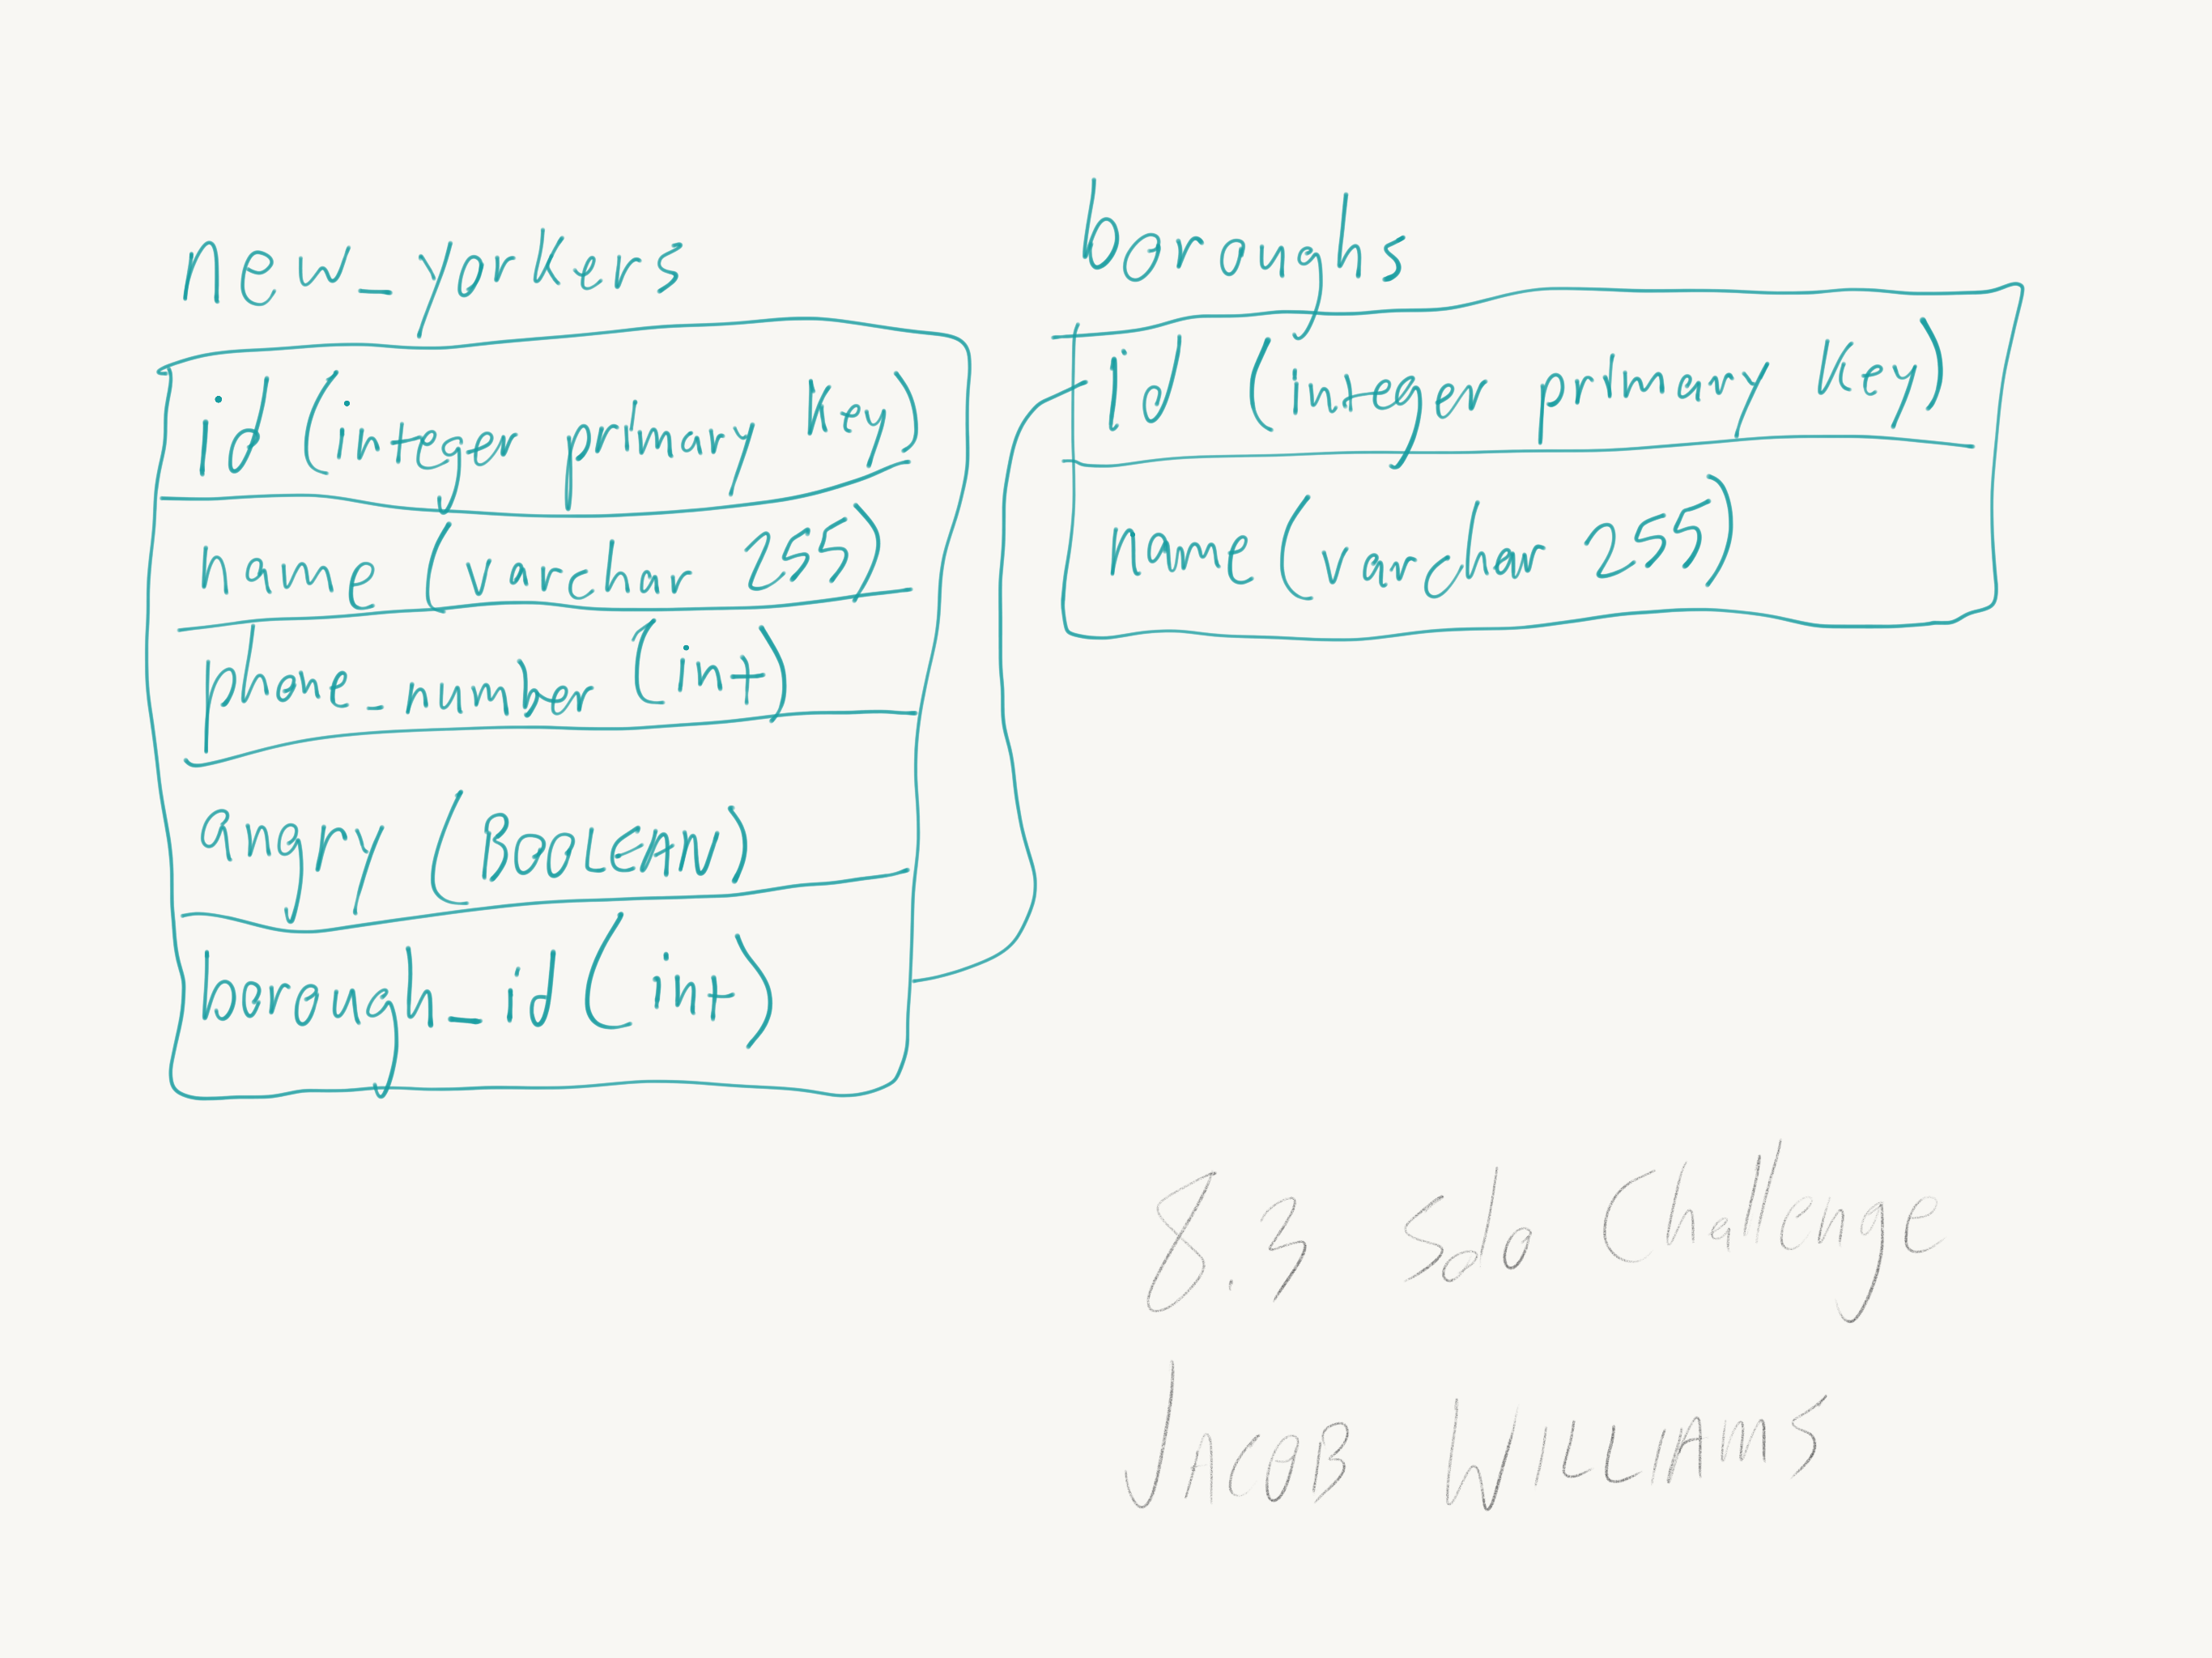 new_yorkers
id (integer primary key)
name (varchar 255)
phone_number (int)
angry (BOOLEAN)
borough_id (int)
boroughs
id (integer primary key)
name (varchar 255)
8.3 Solo Challenge
JACOB WILLIAMS